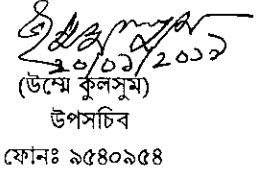 ২০/০১/২০১৯
(উম্মে কুলসুম)
উপসচিব
ফোনঃ ৯৫৪০৯৫৪